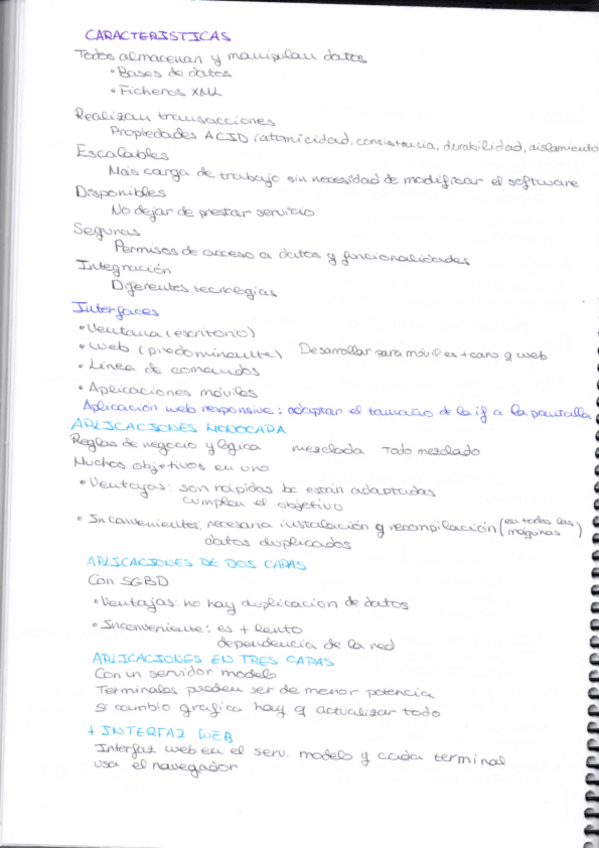 CARACTERISTICAS
Todos almacenan y manipulan datos
• Bases de datos
• Ficheros XML
Realizan transacciones
Propiedades ACID (atomicidad, consistencia, durabilidad, aislamiento
Escalables
Más carga de trabajo sin necesidad de modificar el software
Disponibles
No dejar de prestar servicio
Seguras
Permisos de acceso a datos y funcionalidades
Integración
Diferentes tecnologías
Interfaces
• Ventana (escritorio)
• Web (predominante) Desarrollar para móvil es + caro q web
• Línea de comandos
• Aplicaciones móviles
Aplicación web responsive: adaptar el tamaño de la if a la pantalla
APLICACIONES MONOCAPA
Reglas de negocio y lógica mezclada Todo mezclado
Muchos objetivos en uno
• Ventajas: son rápidas bc están adaptadas
cumplen el objetivo
• Inconvenientes: necesaria instalación y recompilación (en todas las máquinas)
datos duplicados
APLICACIONES DE DOS CAPAS
Con SGBD
• Ventajas: no hay duplicacion de datos
• Inconveniente: es + lento
dependencia de la red
APLICACIONES EN TRES CAPAS
Con un servidor modelo
Terminales pueden ser de menor potencia
Si cambio grafica hay q actualizar todo
+ INTERFAZ WEB
Interfaz web en el serv. modelo y cada terminal
usa el navegador